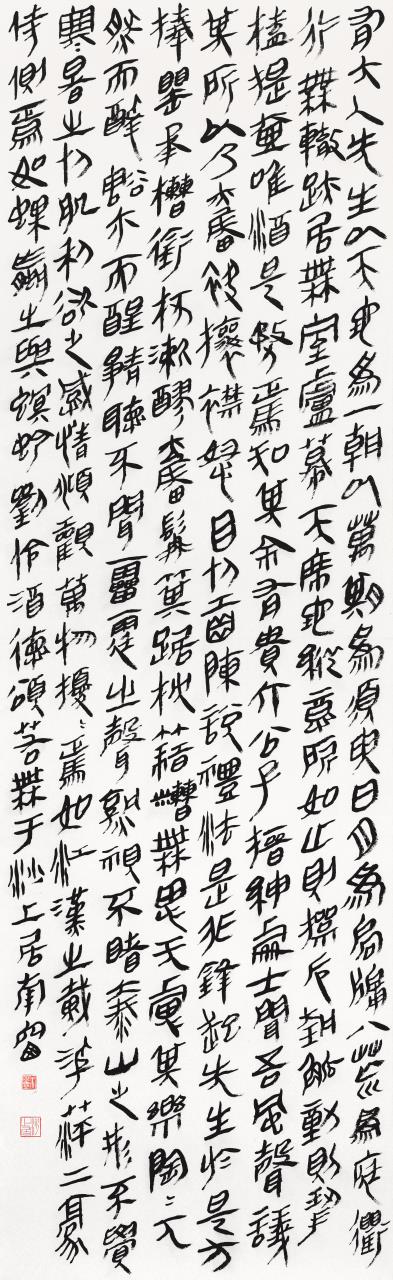 有大人先生以天地為一朝以萬期為須臾日月為扃牖八荒為庭衢
行無轍跡居無室廬幕天席地縱意所如止則操卮執觚動則挈
榼提壺唯酒是務焉知其余有貴介公子搢紳處士聞吾風聲議
其所以乃奮袂攘襟怒目切齒陳說禮法是非鋒起先生於是方
捧罌承槽銜杯漱醪奮髯箕踞枕藉糟無思无慮其樂陶〻兀
然而醉豁尓而醒靜聽不聞雷霆之聲熟視不睹泰山之形不覺
寒暑之切肌利欲之感情俯觀萬物擾〻焉如江漢之載浮萍二豪
侍側焉如蜾蠃之與螟蛉劉伶酒德頌若無于沙上居南窗